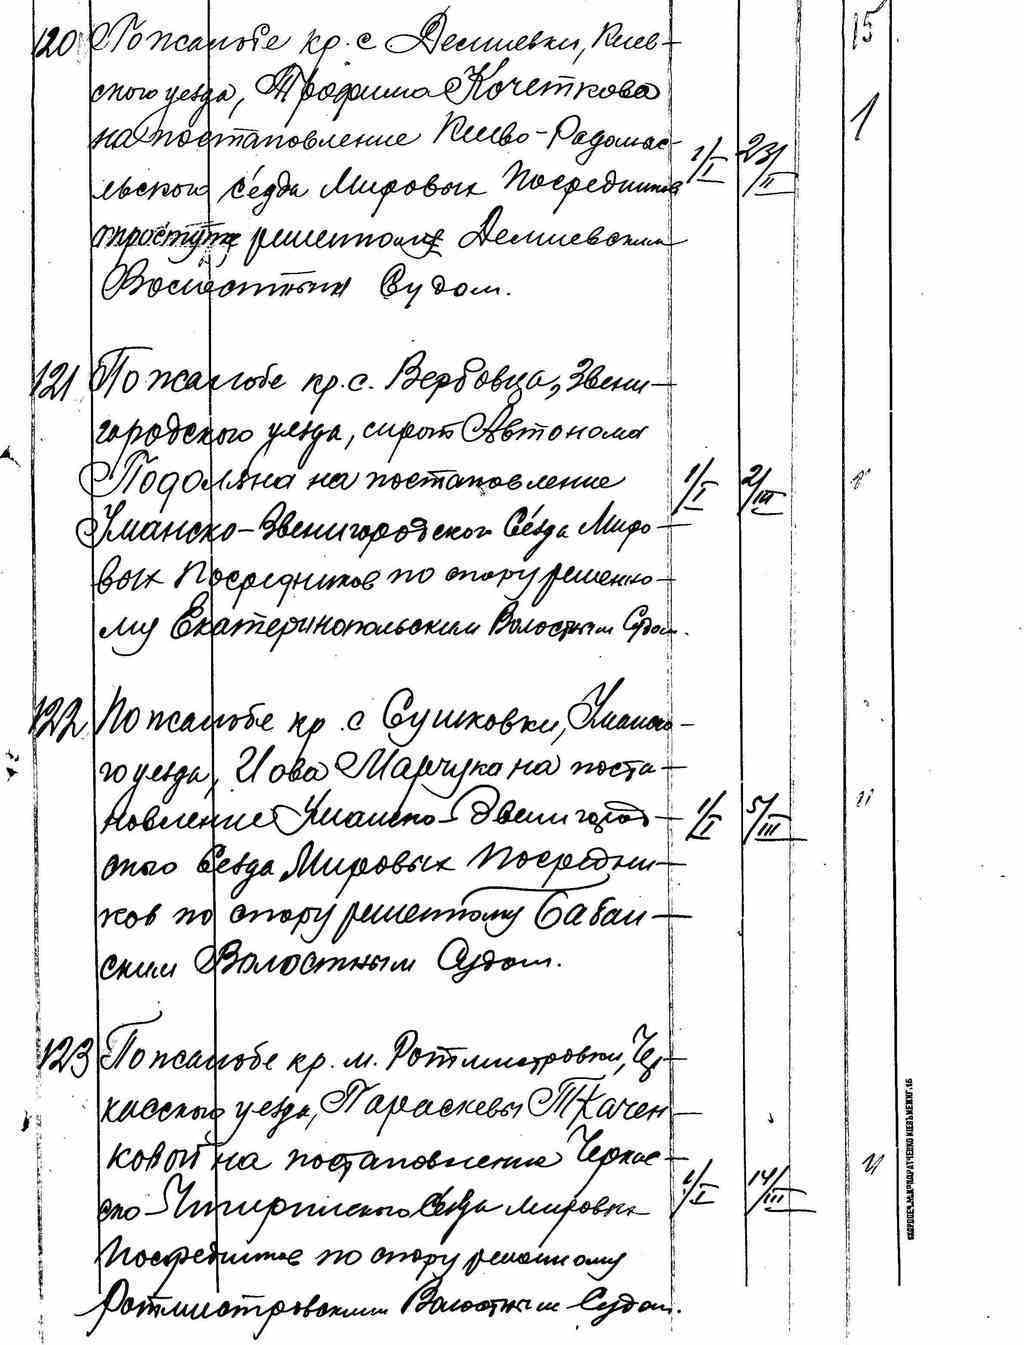 15
120 По жалобе кр. с Демиевки, Киев-
ского уезда, Трофима Кочеткова
на постановление Киево-Радомыс-
1/I 23/II 1
льского с'езда Мировых Посредников
решенному Демиевским
Волостным Судом.
121 По жалобе кр. с. Вербовца, Звени-
городского уезда, сирот Автонома
Подоляна на постановление 1/I 2/III "
Уманско-Звенигородского С'езда Миро-
вых Посредников по спору решенно-
му Екатеринопольским Волостным Судом.
122 По жалобе кр. с Сушковки, Уманско-
го уезда, Иова Марчука на поста-
новление Уманско-Звенигород- 1/I 5/III "
ского С'езда Мировых Посредни-
ков по спору решенному Бабан-
ским Волостным Судом.
123 По жалобе кр. м. Ротмистровки, Чер-
касского уезда, Параскевы Ткачен-
ковой на постановление Черкас-
ско-Чигиринского С'езда Мировых 1/I 14/III "
Посредников по спору решенному
Ротмистровским Волостным Судом.